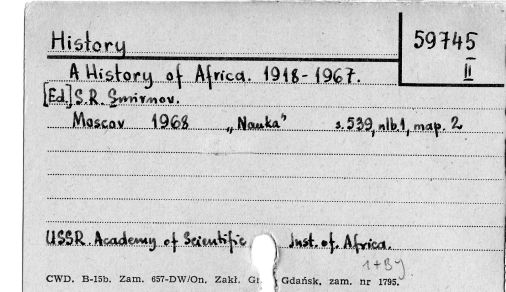 History
59745
II
A History of Africa. 1918-1967.
[Ed.] S.R. Smirnov.
Moscov 1968 „Nauka" s. 539, nlb. 1, map. 2
USSR. Academy of Scientific Inst. of. Africa.
1+By
CWD. B-15b. Zam. 657-DW/On. Zakł. Gr Gdańsk, zam. nr 1795.